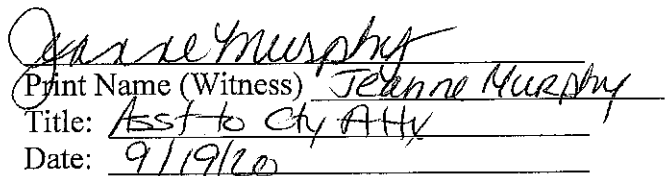 Jeanne Murphy
Print Name (Witness) Jeanne Murphy
Title: Asst to Cty Atty
Date: 9/19/20